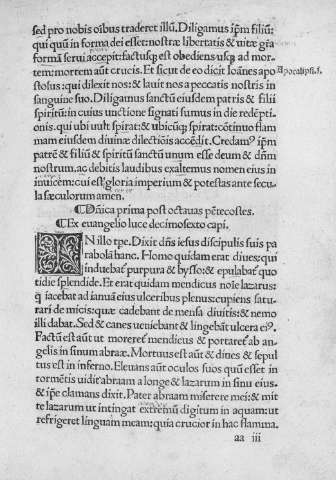 sed pro nobis oïbus traderet illũ. Diligamus ip̃m filiũ:
qui quũ in forma dei esset: nostræ libertatis & uitæ gr̃a
formã serui accepit: factusq; est obediens usq; ad mor-
tem: mortem aũt crucis. Et sicut de eo dicit Ioãnes apo
Apocalipsi.i.
stolus: qui dilexit nos: & lauit nos a peccatis nostris in
sanguine suo. Diligamus sanctũ eiusdem patris & filii
spiritũ: in cuius unctione signati sumus in die redẽpti
onis. qui ubi uult spirat: & ubicũq; spirat: cõtinuo flam
mam eiusdem diuinæ dilectiõis accẽdit. Credam9 ip̃m
patrẽ & filiũ & spiritũ sanctũ unum esse deum & dñm
nostrum. ac debitis laudibus exaltemus nomen eius in
inuicem: cui est gloria imperium & potestas ante secu
la sæculorum amen.
¶ Dñica prima post octauas pẽtecostes.
¶ Ex euangelio luce decimosexto capi.
IN illo tp̃e. Dixit dñs iesus discipulis suis pa
rabolã hanc. Homo quidam erat diues: qui
induebat̃ purpura & bysso: & epulabat̃ quo
tidie splendide. Et erat quidam mendicus noïe lazarus:
q̃ iacebat ad ianuã eius ulceribus plenus: cupiens satu-
rari de micis: quæ cadebant de mensa diuitis: & nemo
illi dabat. Sed & canes ueniebant & lingebãt ulcera ei9.
Factũ est aũt ut moreret̃ mendicus & portaret̃ ab an-
gelis in sinum abraæ. Mortuus est aũt & diues & sepul
tus est in inferno. Eleuans aũt oculos suos quũ esset in
tormẽtis uidit abraam a longe & lazarum in sinu eius:
& ip̃e clamans dixit. Pater abraam miserere mei: & mit
te lazarum ut intingat extremũ digitum in aquam: ut
refrigeret linguam meam: quia crucior in hac flamma.
aa iii